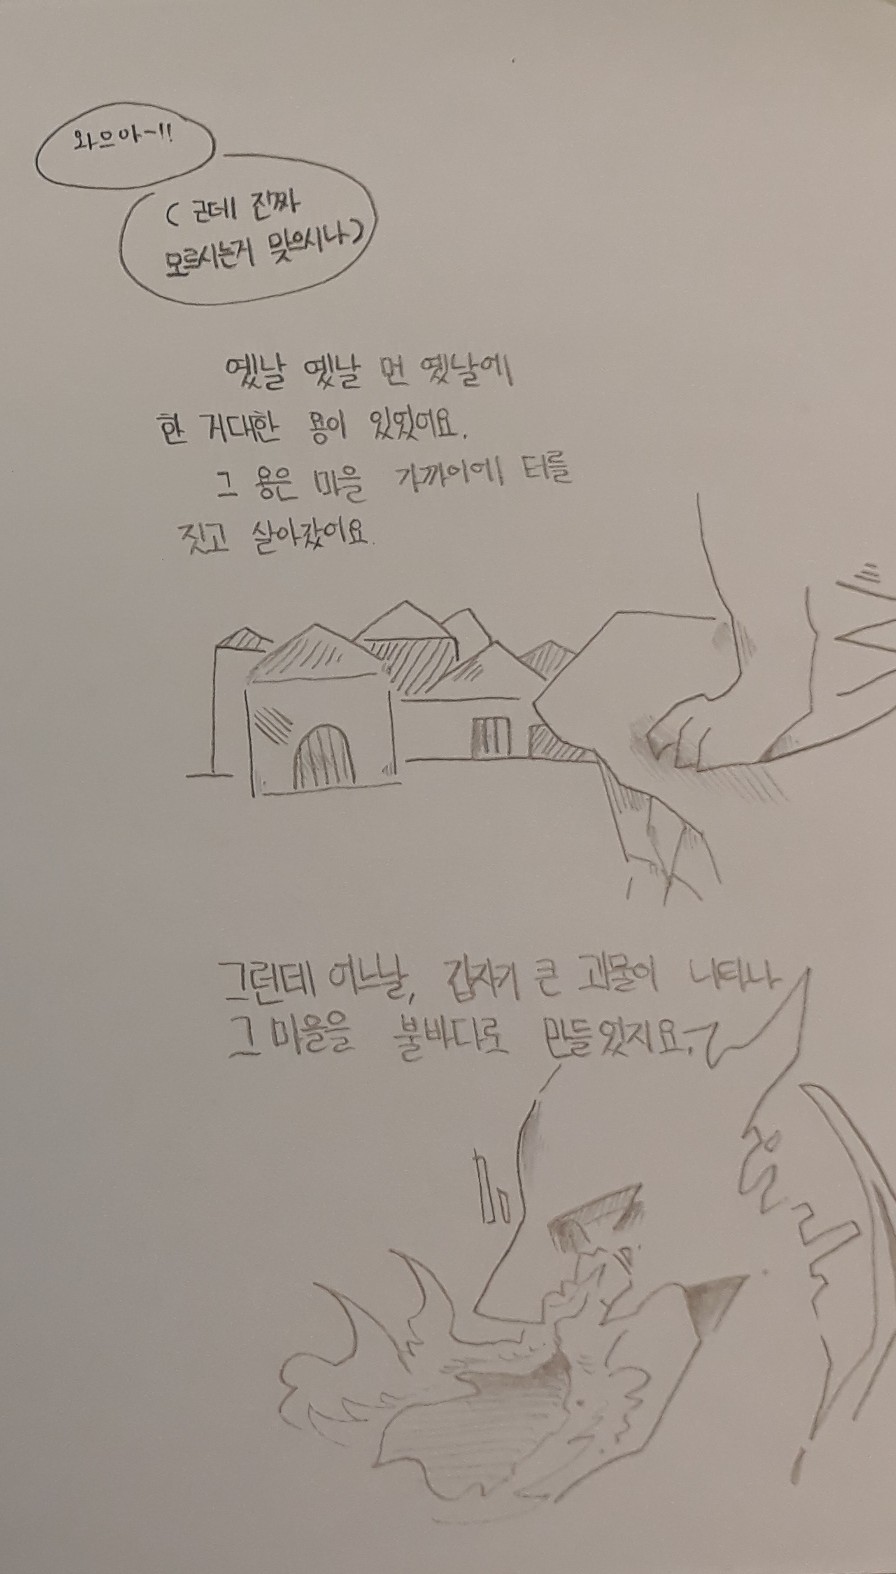 와으아~!!
(근데 진짜
모르시는거 맞으시나)
옛날 옛날 먼 옛날에
한 거대한 용이 있었어요.
그 용은 마을 가까이에 터를
짓고 살아갔어요.
그런데 어느날, 갑자기 큰 괴물이 나타나
그 마을을 불바다로 만들었지요.